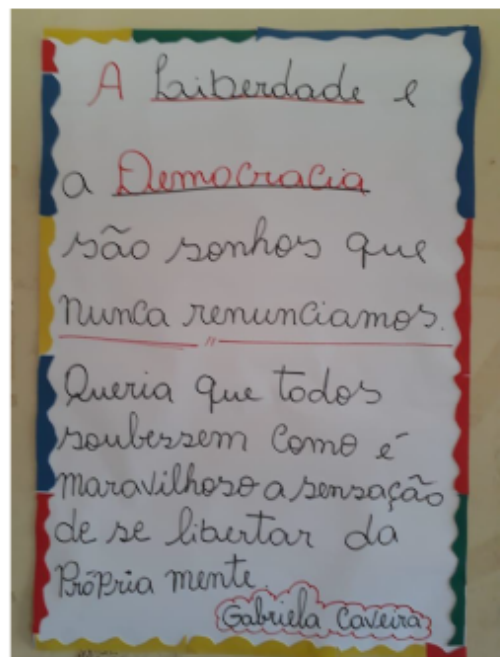 A Laiberdade e
a Democracia
são sonhos que
nunca renunciamos.
Queria que todos
soubessem como é
maravilhoso a sensação
de se libertar da
Própria mente.
Gabriela Caveira